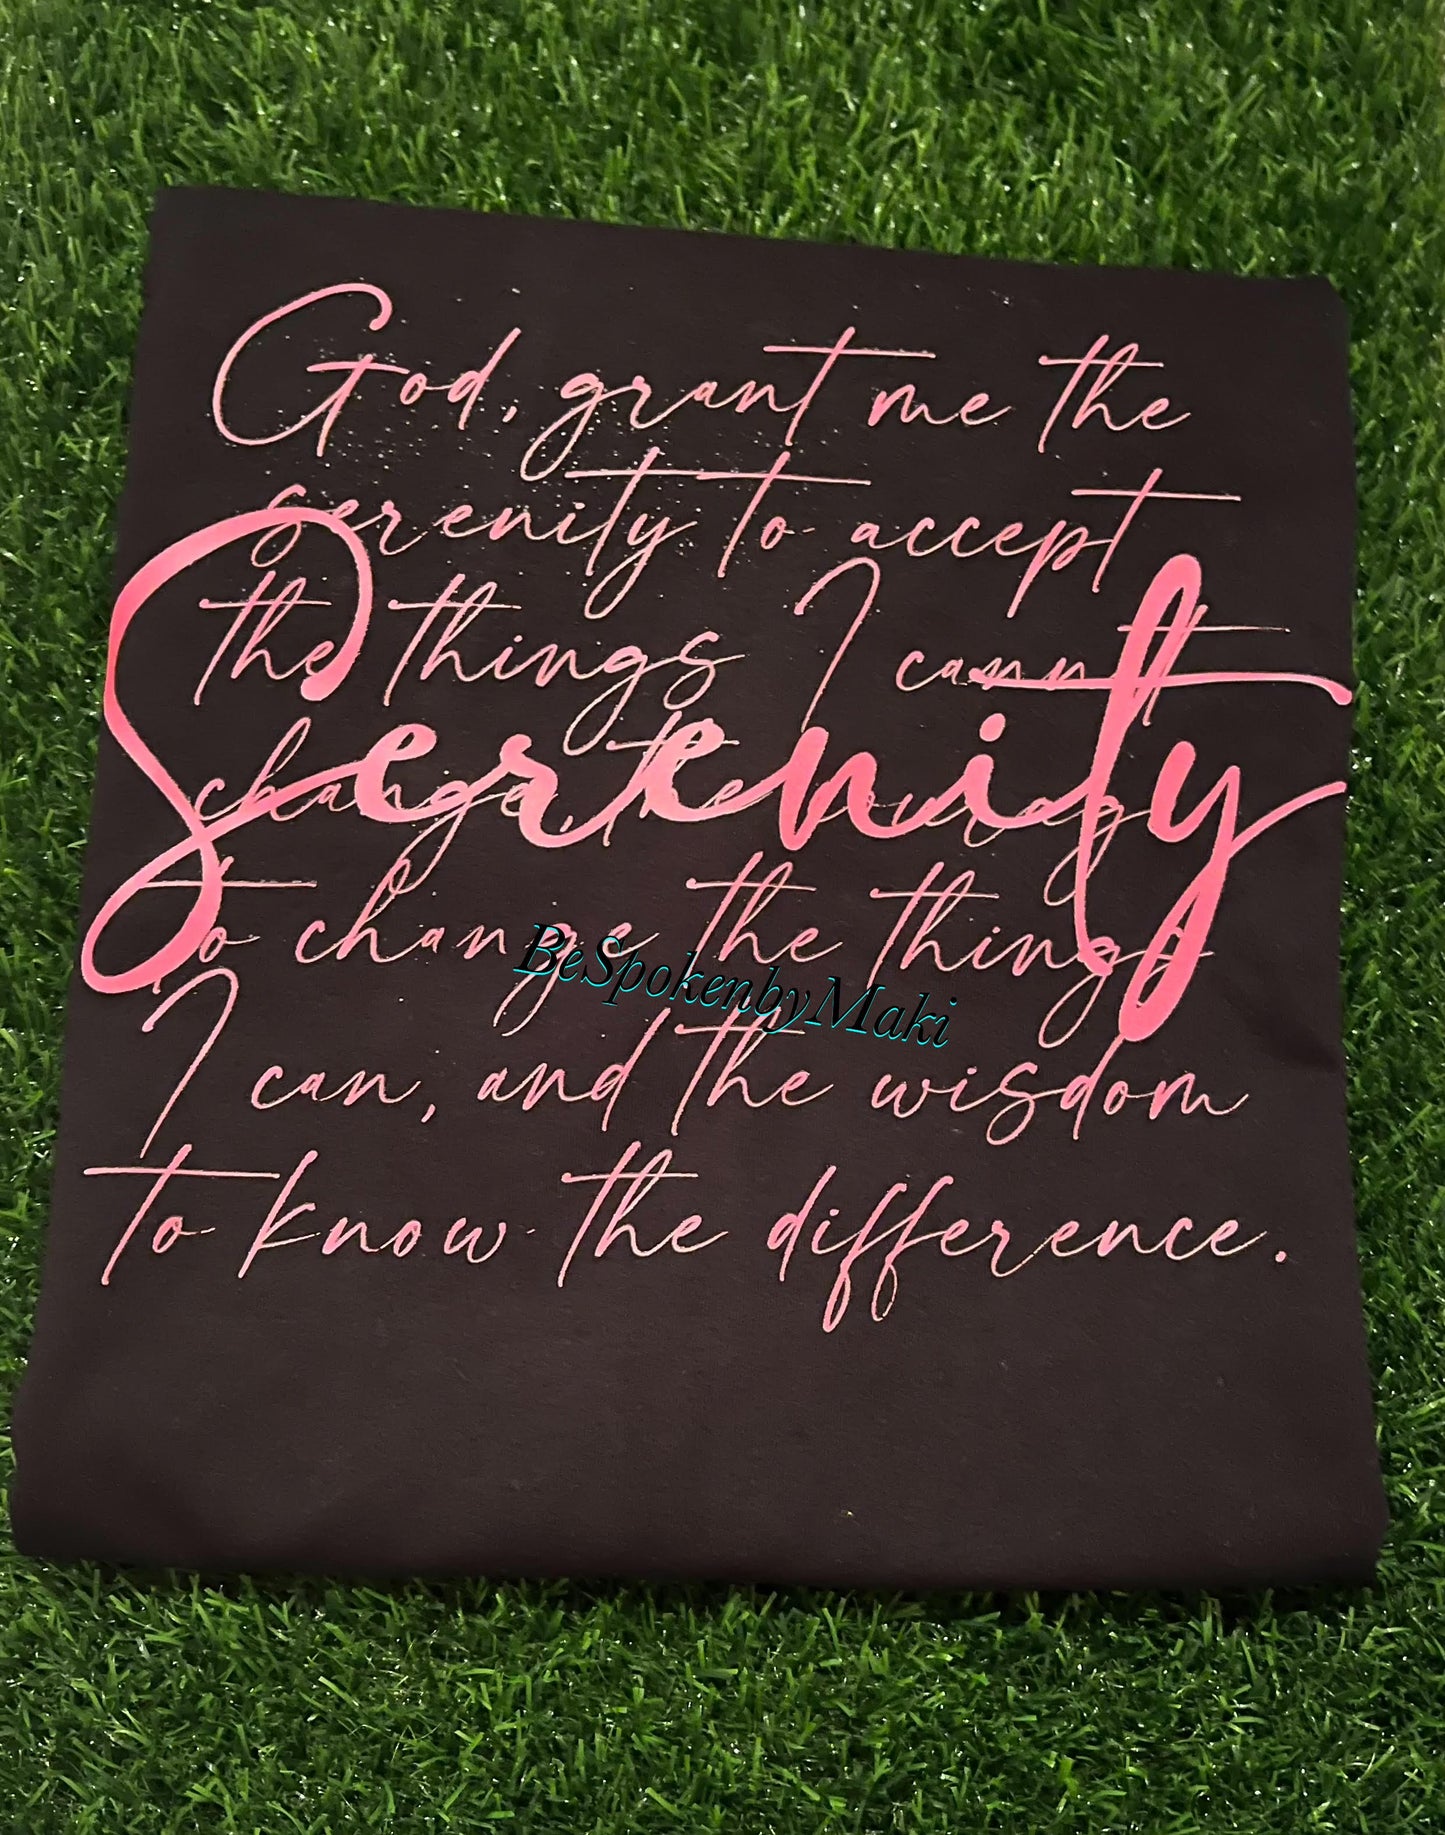 God, grant me the
serenity to accept
the things I cannot
Serenity
change, the courage
to change the things
BeSpokenbyMaki
I can, and the wisdom
to know the difference.